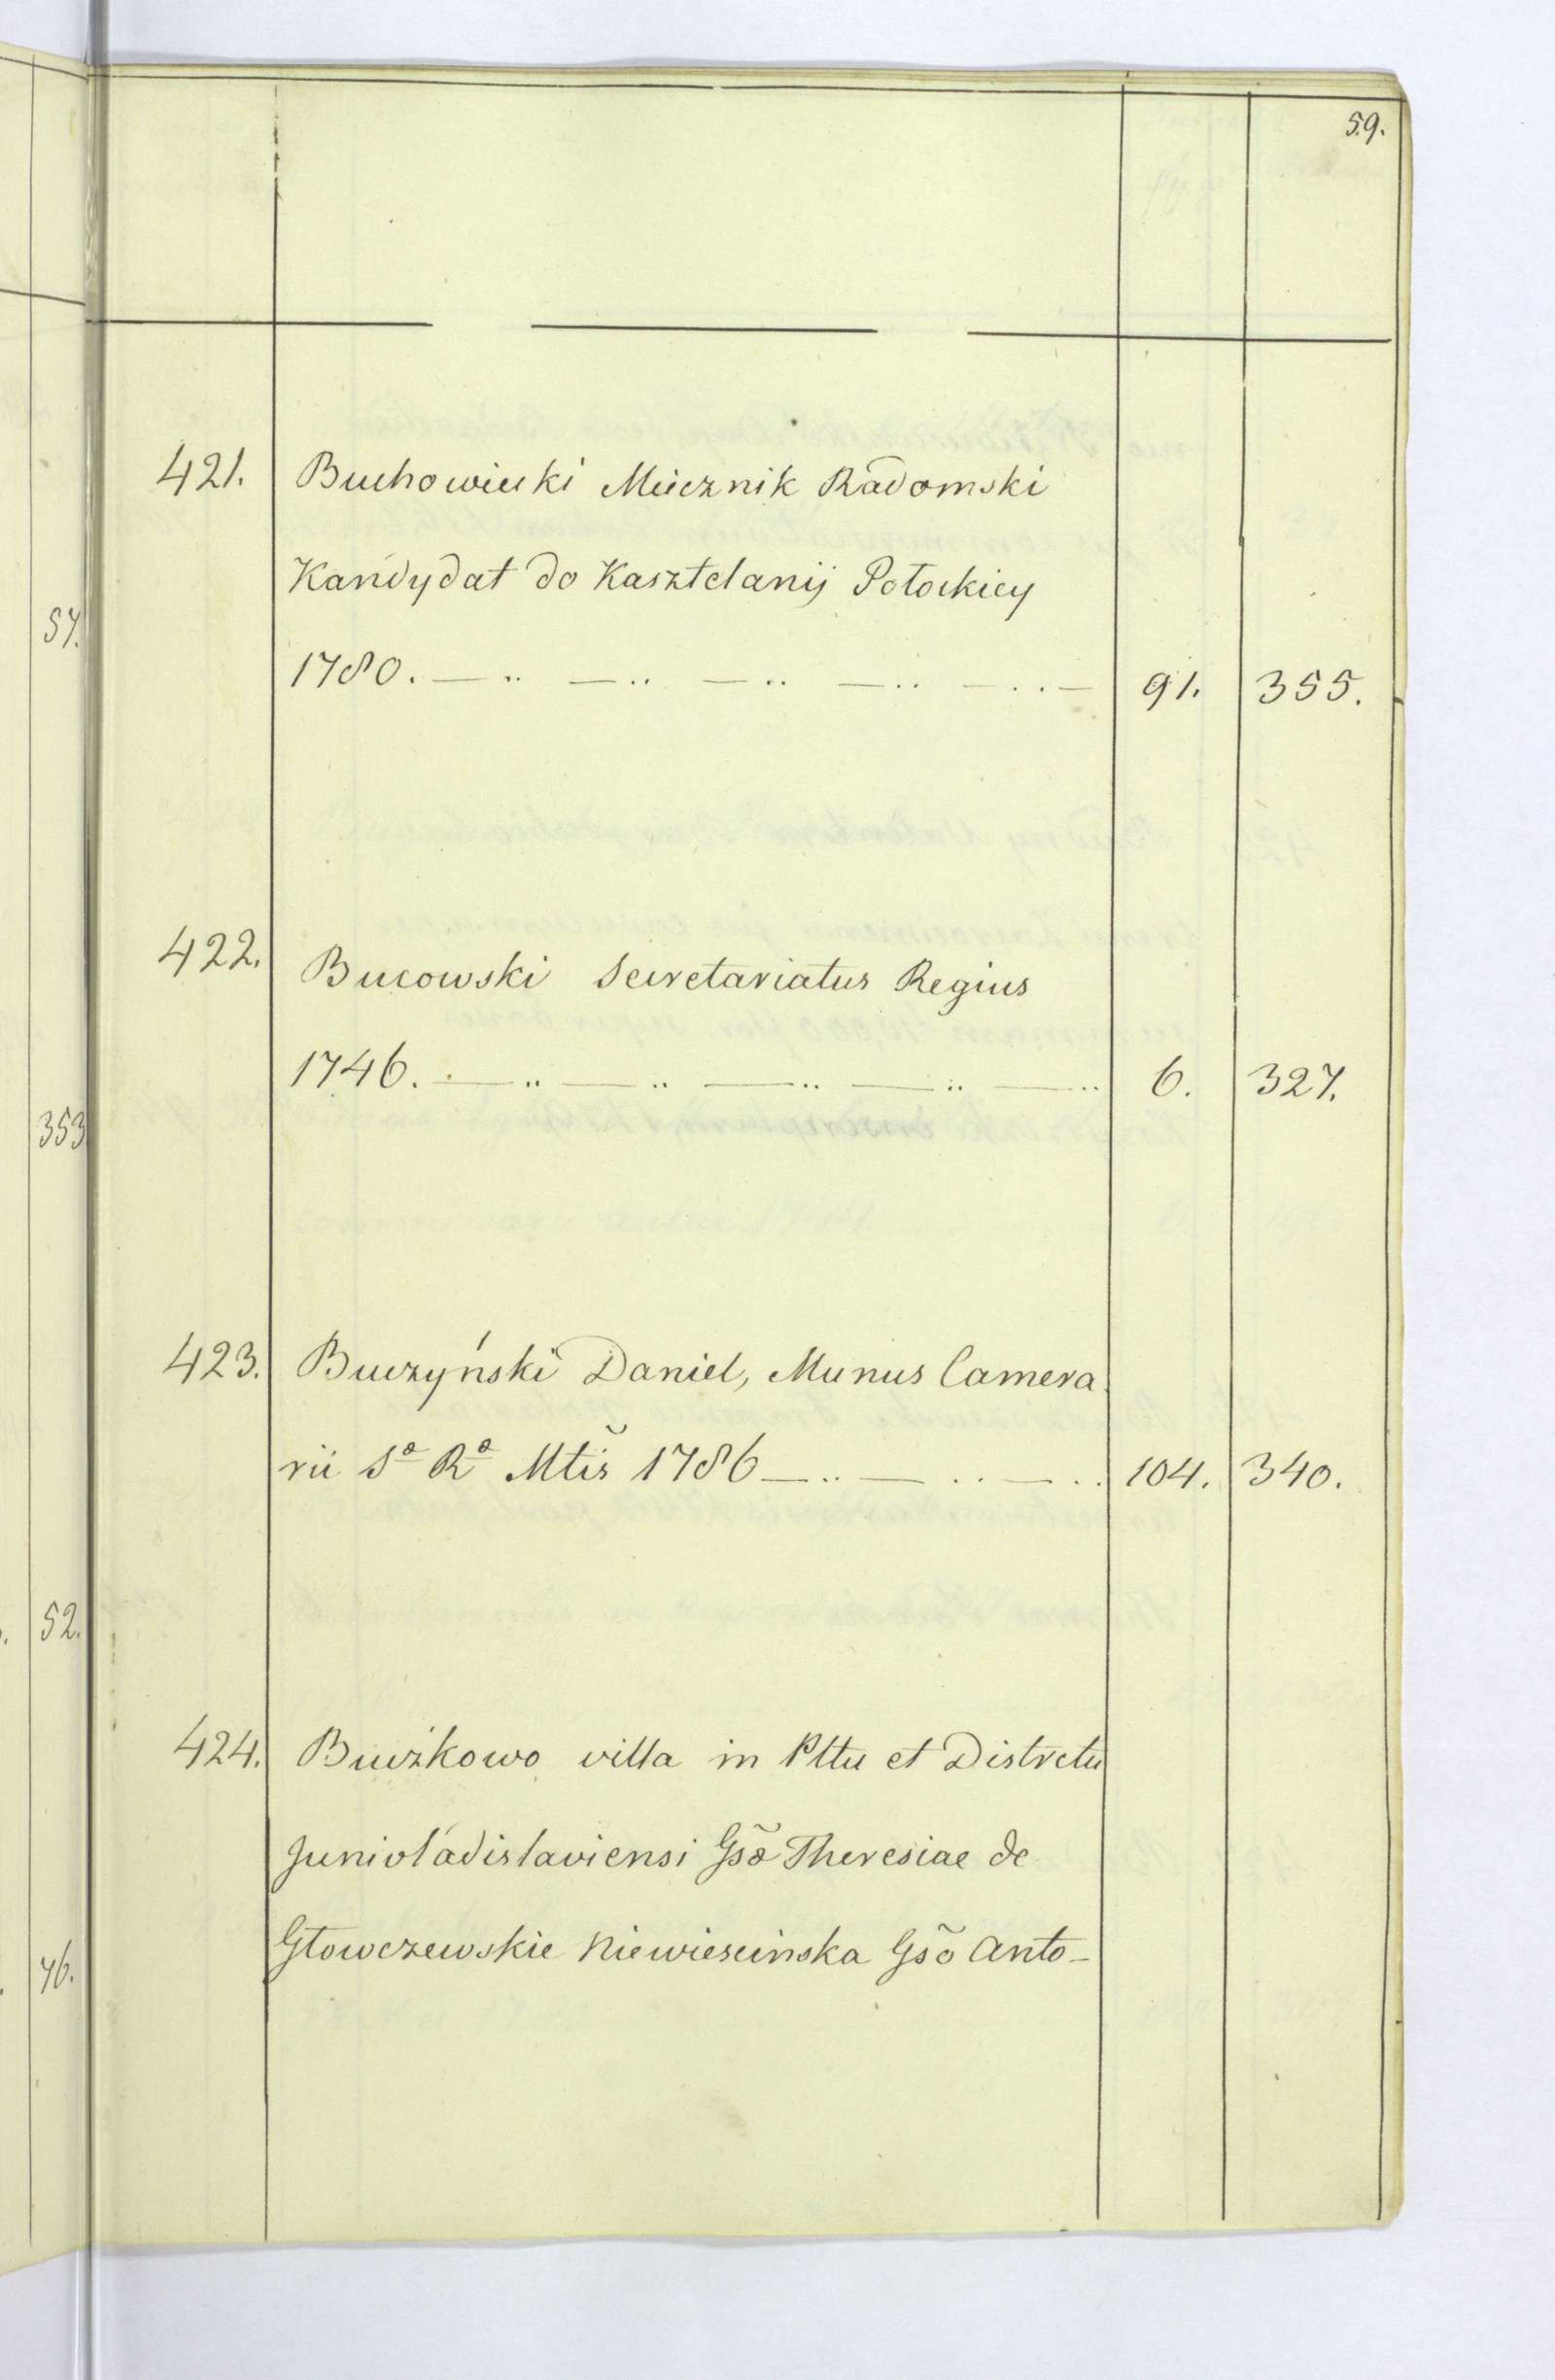 59.
421. Buchowiecki Miecznik Radomski
Kandydat do Kasztelanij Połockiey
1780. — .. — .. — .. — .. — .. — 91. 355.
422. Bucowski Secretariatus Regius
1746. — .. — .. — .. — .. — .. 6. 327.
423. Buczyński Daniel, Munus Camera
rii Sæ Ræ Mtis̃ 1786 — .. — .. — .. 104. 340.
424. Buczkowo villa in Pttu et Districtu
Junivladislaviensi Gsõæ Theresiae de
Głowczewskie Niewiescinska Gsõ Anto-
57.
353
52.
76.